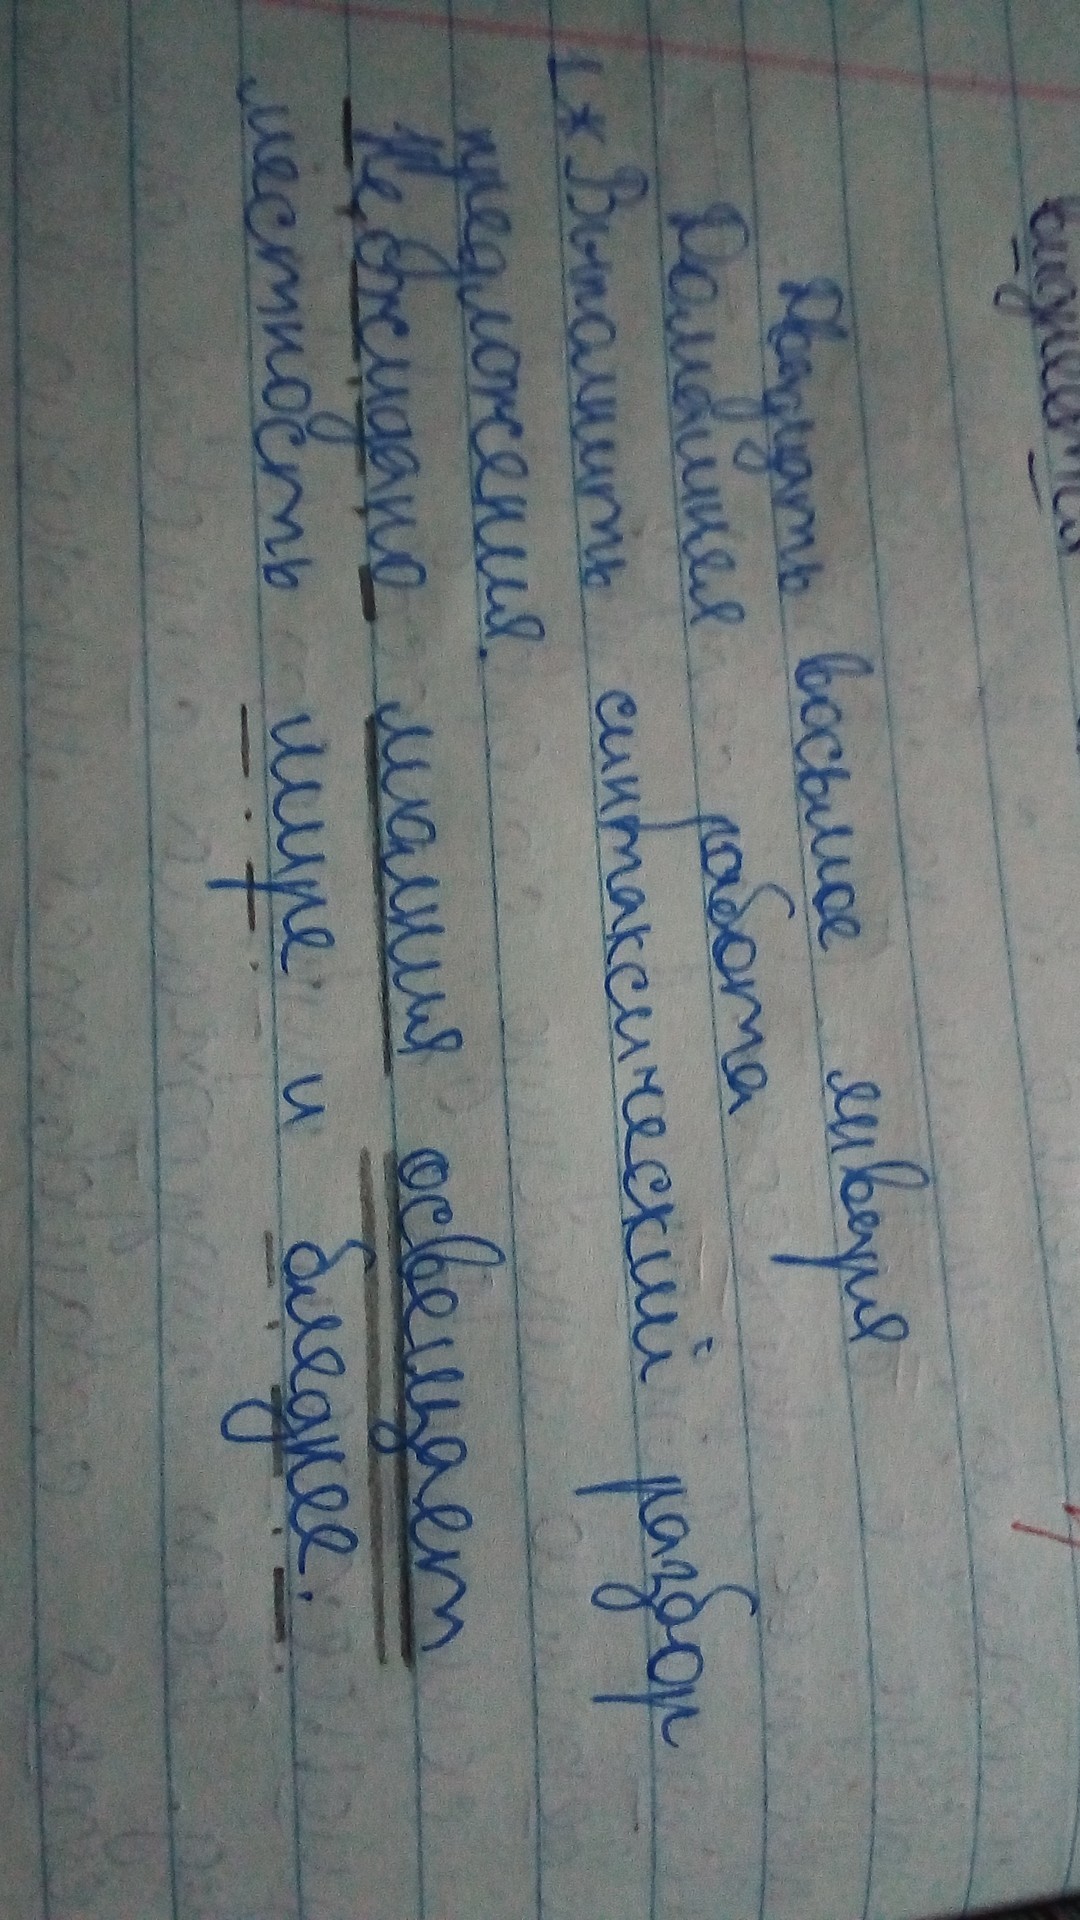 Двадцать восьмое января
Домашняя работа
1* Выполнить синтаксический разбор
предложения.
Неожидано молния освещает
местность шире и бледнее.